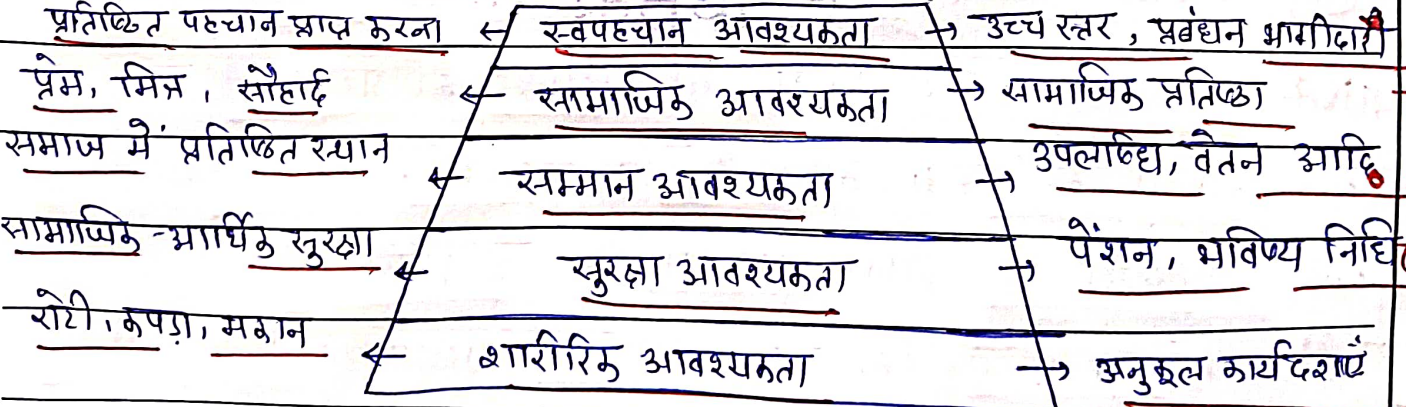 प्रतिष्ठित पहचान प्राप्त करना ← स्वपहचान आवश्यकता → उच्च स्तर, प्रबंधन भागीदारी
प्रेम, मित्र, सौहार्द ← सामाजिक आवश्यकता → सामाजिक प्रतिष्ठा
समाज में प्रतिष्ठित स्थान ← सम्मान आवश्यकता → उपलब्धि, वेतन आदि
सामाजिक-आर्थिक सुरक्षा ← सुरक्षा आवश्यकता → पेंशन, भविष्य निधि
रोटी, कपड़ा, मकान ← शारीरिक आवश्यकता → अनुकूल कार्यदशाएं